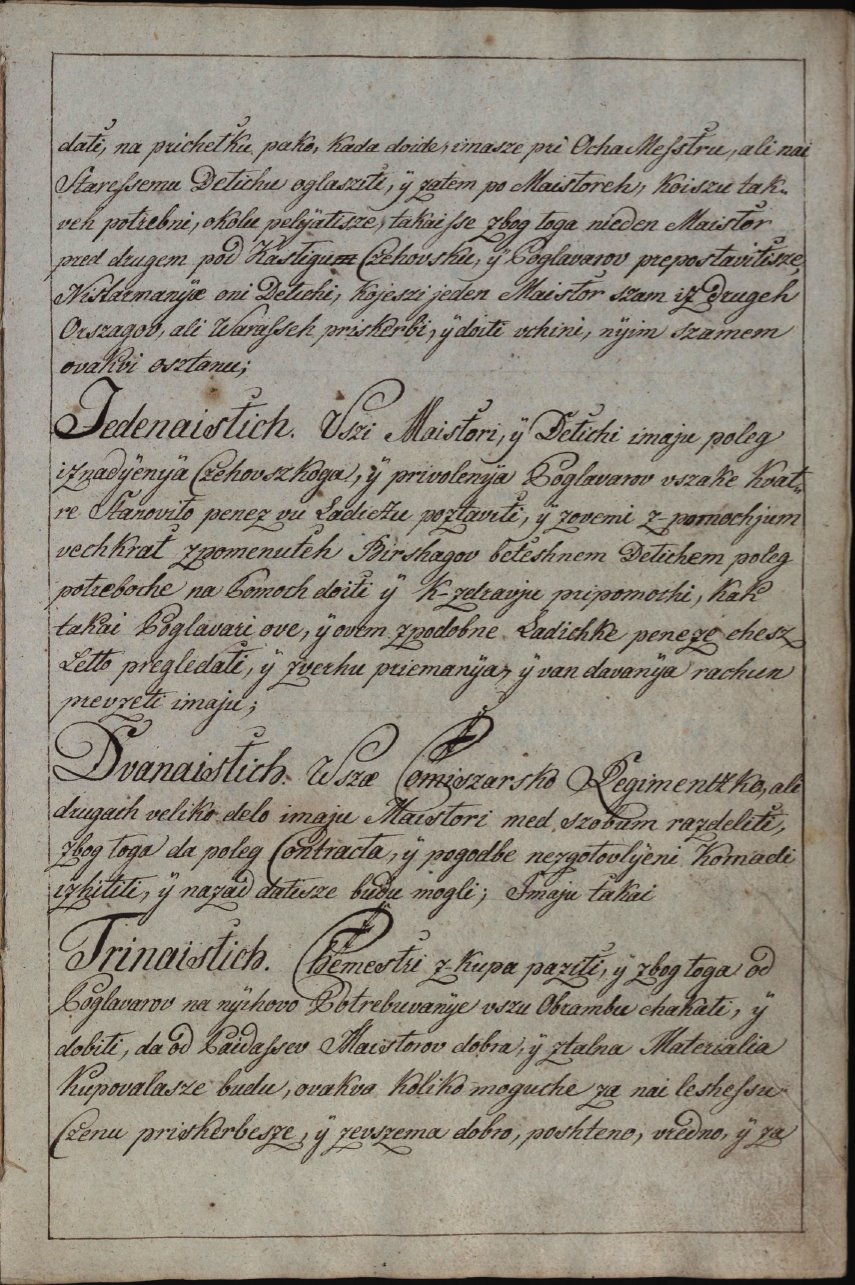 dati, na prichetku pako, kada doide, imasze pri Ocha Messtru, ali nai
Staressemu Detichu oglasziti, ÿ zatem po Maistoreh, koiszu tak-
veh potrebni, okolu pelyatisze, takaisse zbog toga nieden Maistor
pred drugem pod Kastigum Czehovsku, ÿ Poglavarov prepostavitisze,
Nistarmanÿe oni Detichi, kojeszi jeden Maistor szam iz Drugeh
Orszagov, ali Warasseh priskerbi, ÿ doiti vchini, nÿim szamem
ovakvi osztanu;
Jedenaistich. Vszi Maistori, ÿ Detichi imaju poleg
iznadÿenÿa Czehovszkoga, ÿ privolenÿa Poglavarov vszake kvat-
re Stanovito penez vu Ladiczu poztaviti, ÿ zovemi z-pomochjum
vechkrat zpomenuteh Birshagov beteshnem Detichem poleg
potreboche na Pomoch doiti ÿ K-zdravju pripomochi, kak
takai Poglavari ove, ÿ ovem zpodobne Ladichke peneze chesz
Letto pregledati, ÿ zverhu priemanÿa, ÿ van davanÿa rachun
prevzeti imaju;
Dvanaistich. Wszæ Comiszarsko Regimentzko, ali
drugach veliko delo imaju Maistori med szobum razdeliti,
zbog toga da poleg Contracta, ÿ pogodbe nezgotovlyeni Komadi
izhititi, ÿ nazad datisze budu mogli; Imaju takai
Trinaistich. Chemestri z-kupa paziti, ÿ zbog toga od
Poglavarov na nÿihovo Potrebuvanÿe vszu Obrambu chakati, ÿ
dobiti, da od Paidassev Maistorov dobra, ÿ ztalna Materialia
Kupovalasze budu, ovakvo koliko moguche za nai leshessu
Czenu priskerbesze, ÿ zevszema dobro, poshteno, vredno, ÿ za